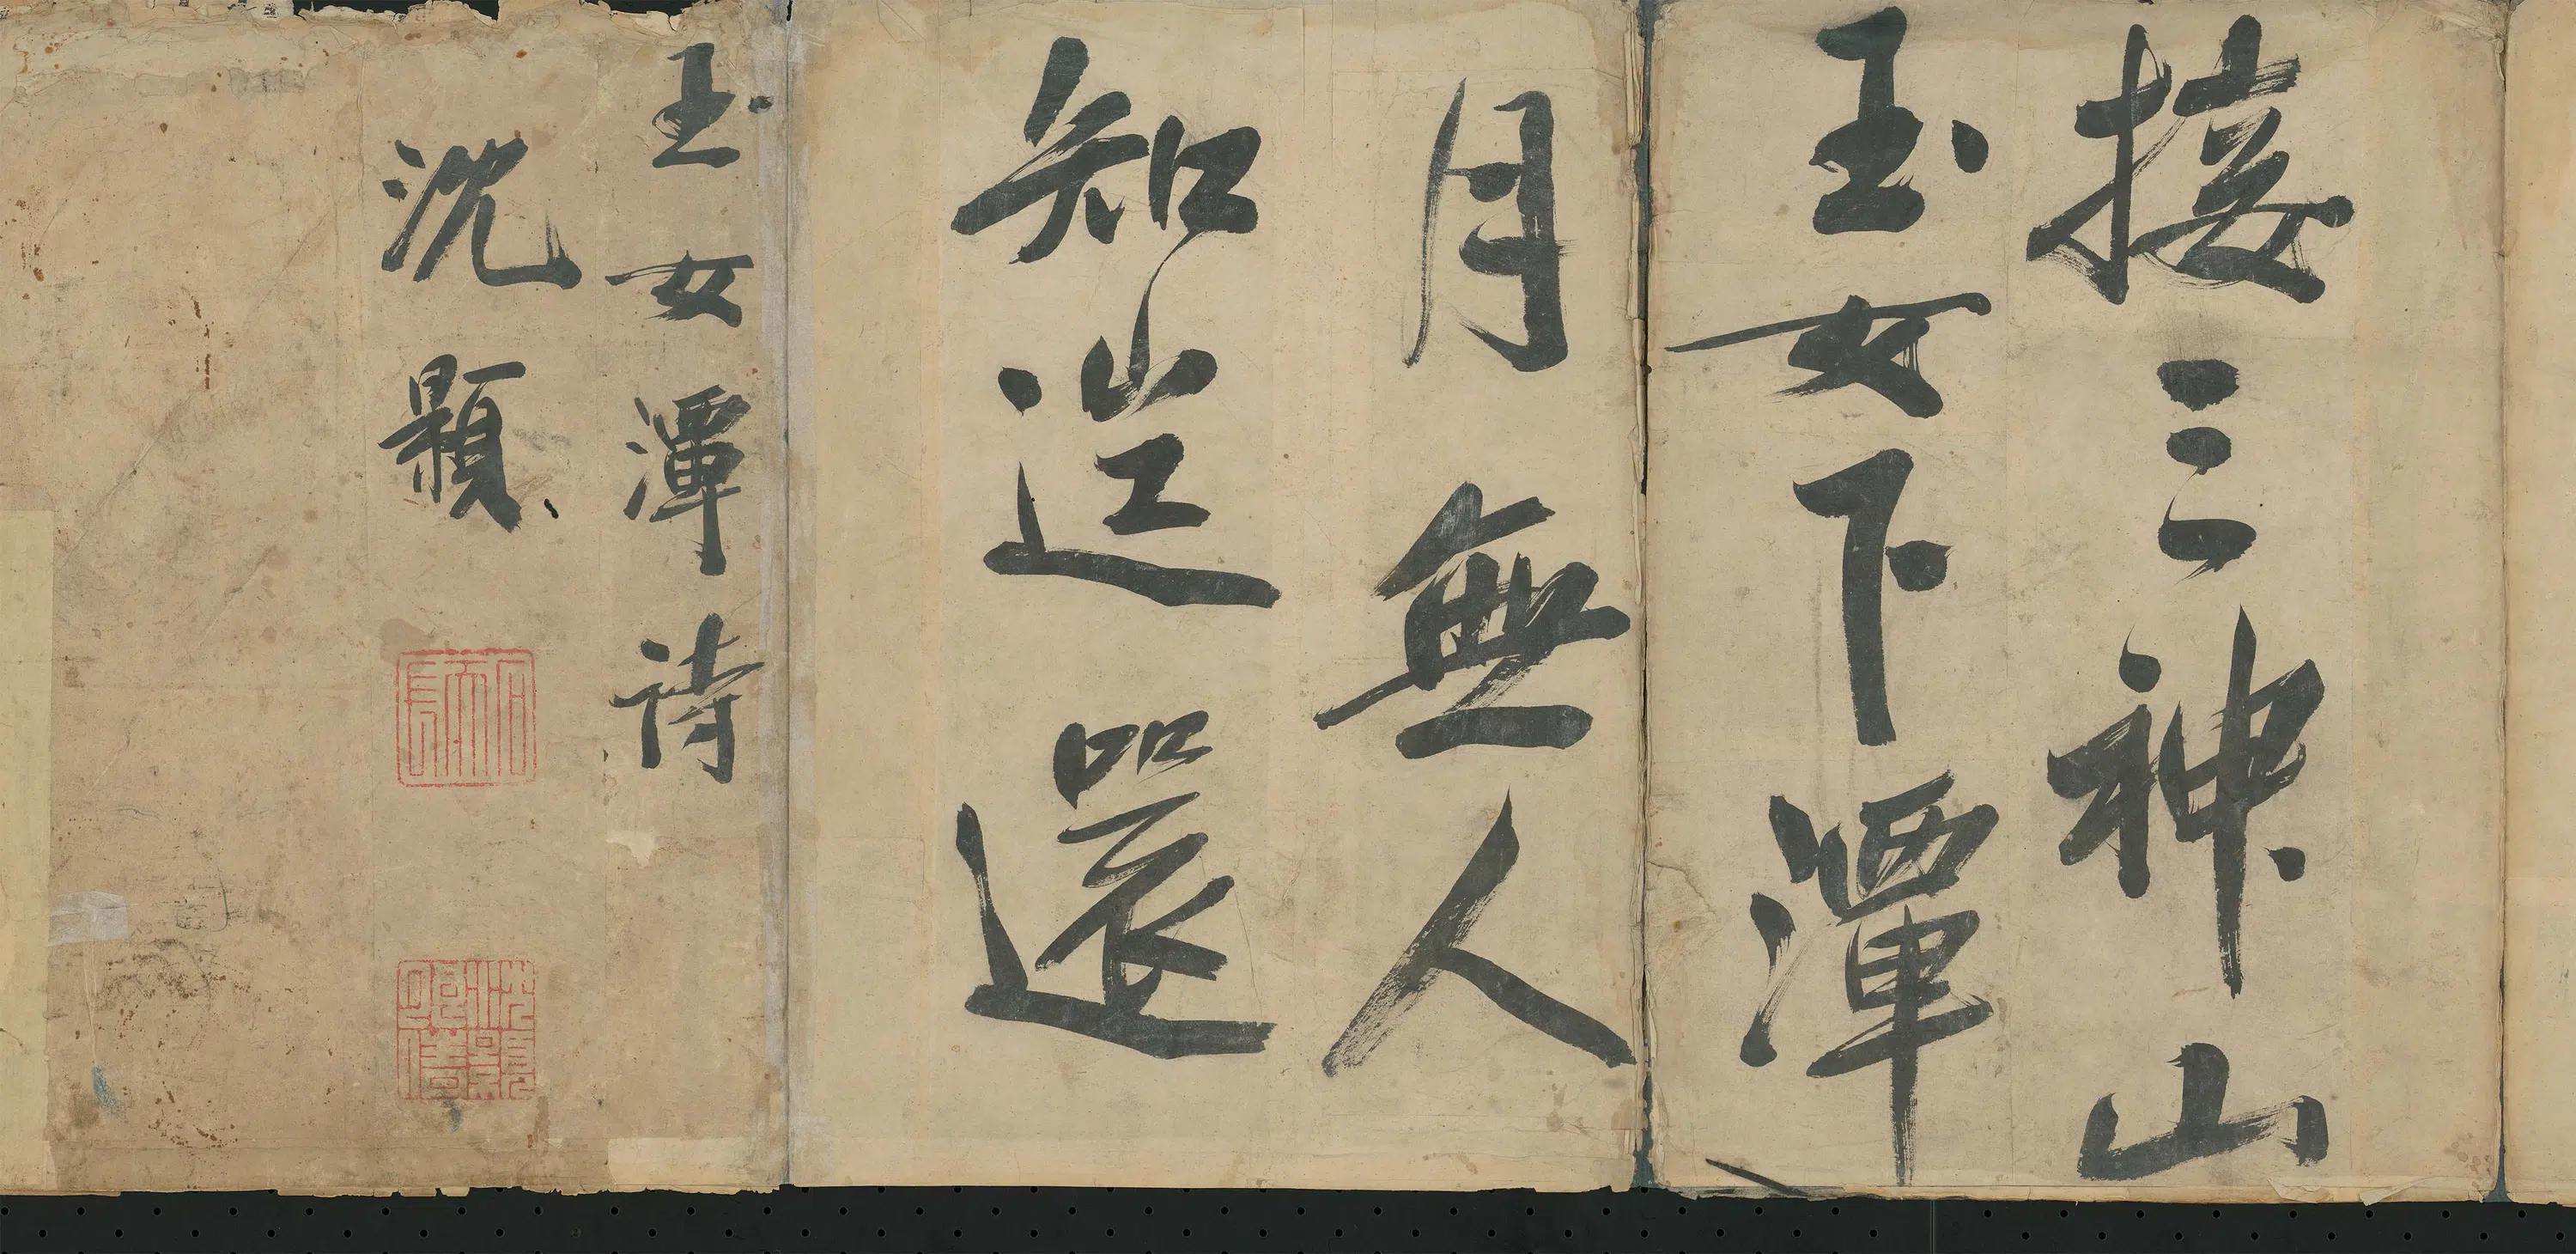 接三神山
玉女下潭
月無人
知往還
玉女潭詩
沈顥